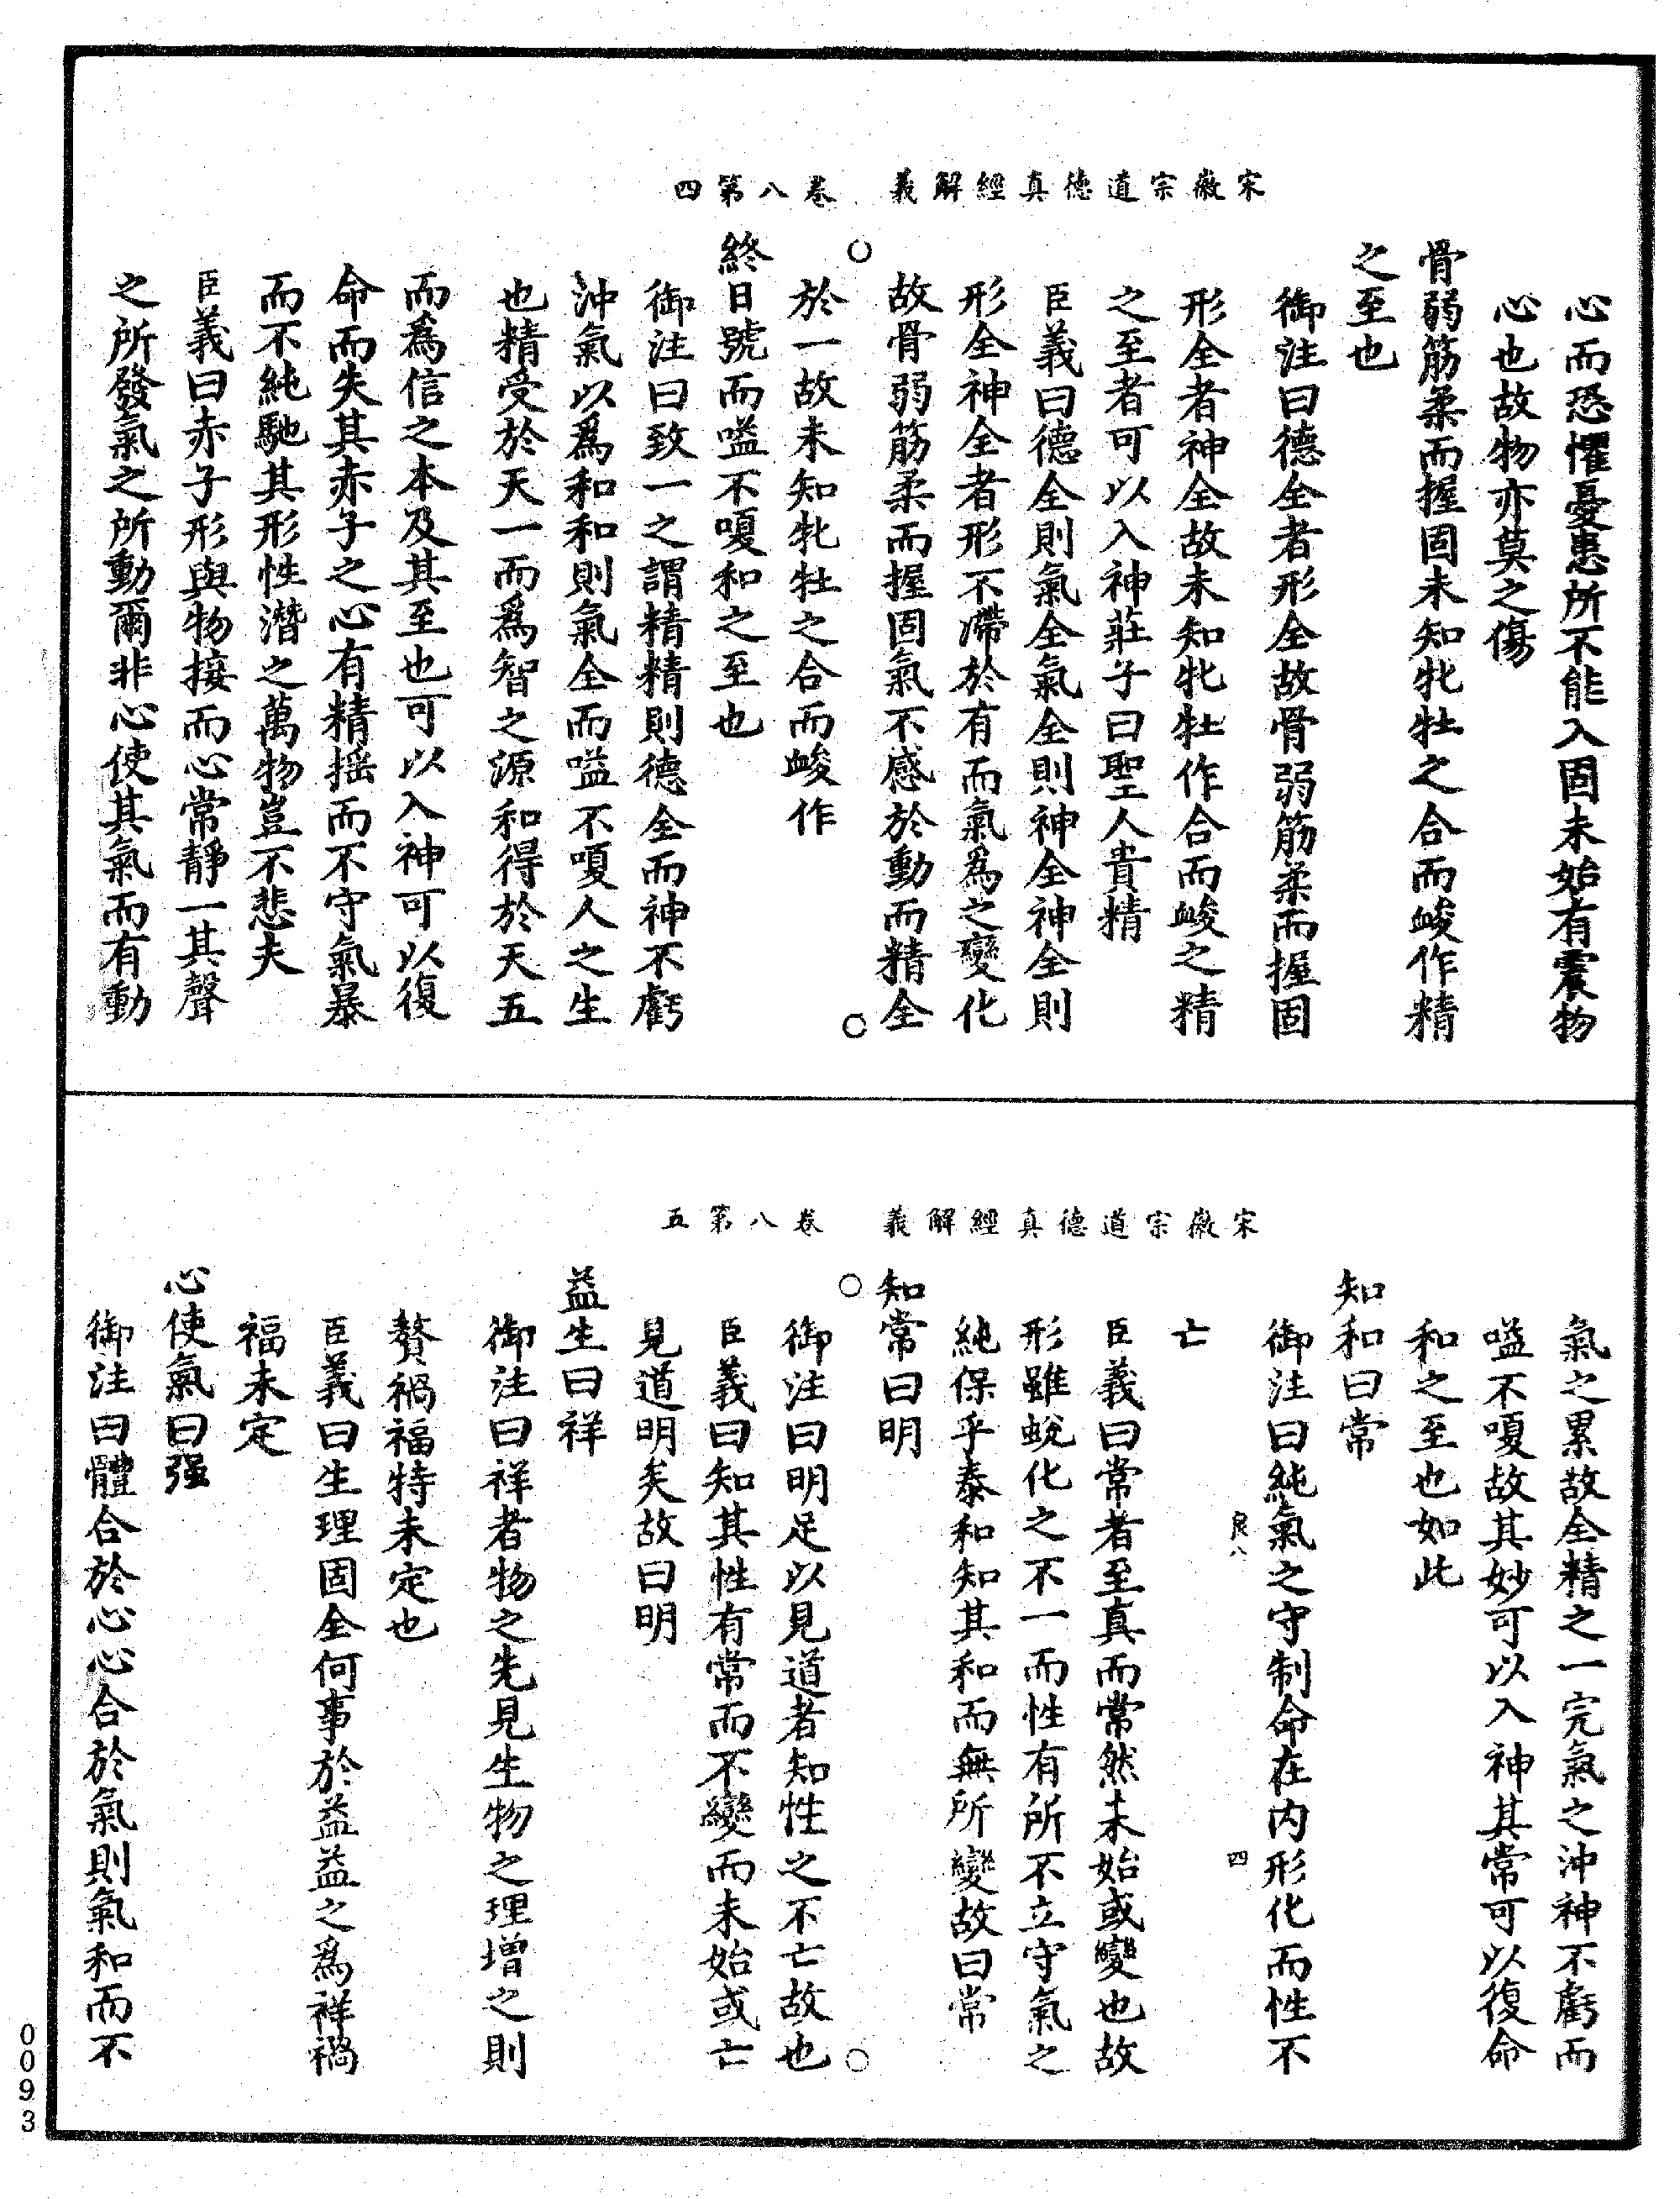 宋徽宗道德真經解義　卷八第四
心而恐懼憂患所不能入固未始有震物
心也故物亦莫之傷
骨弱筋柔而握固未知牝牡之合而㕙作精
之至也
御注曰德全者形全故骨弱筋柔而握固
形全者神全故未知牝牡作合而㕙之精
之至者可以入神莊子曰聖人貴精
臣義曰德全則氣全氣全則神全神全則
形全神全者形不滯於有而氣爲之變化
故骨弱筋柔而握固氣不感於動而精全
於一故未知牝牡之合而㕙作
終日號而嗌不嗄和之至也
御注曰致一之謂精精則德全而神不虧
沖氣以爲和和則氣全而嗌不嗄人之生
也精受於天一而爲智之源和得於天五
而爲信之本及其至也可以入神可以復
命而失其赤子之心有精揺而不守氣暴
而不純馳其形性潛之萬物豈不悲夫
臣義曰赤子形與物接而心常靜一其聲
之所發氣之所動爾非心使其氣而有動
宋徽宗道德真經解義　卷八第五
氣之累故全精之一完氣之沖神不虧而
嗌不嗄故其妙可以入神其常可以復命
和之至也如此
知和曰常
御注曰純氣之守制命在内形化而性不
良八　四
亡
臣義曰常者至真而常然未始或變也故
形雖蛻化之不一而性有所不立守氣之
純保乎泰和知其和而無所變故曰常
知常曰明
御注曰明足以見道者知性之不亡故也
臣義曰知其性有常而不變而未始或亡
見道明矣故曰明
益生曰祥
御注曰祥者物之先見生物之理增之則
贅禍福特未定也
臣義曰生理固全何事於益益之爲祥禍
福未定
心使氣曰强
御注曰體合於心心合於氣則氣和而不
0093